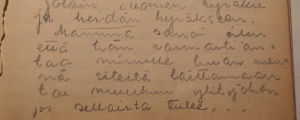 Suomen hyväksi
ja heidän hyväkseen.
Mamma sanoi
että hän varmasti an-
taa minulle luvan men-
nä siteitä laittamaan
tai muuhun ylityöhön
jos sellaista tulee. . . .